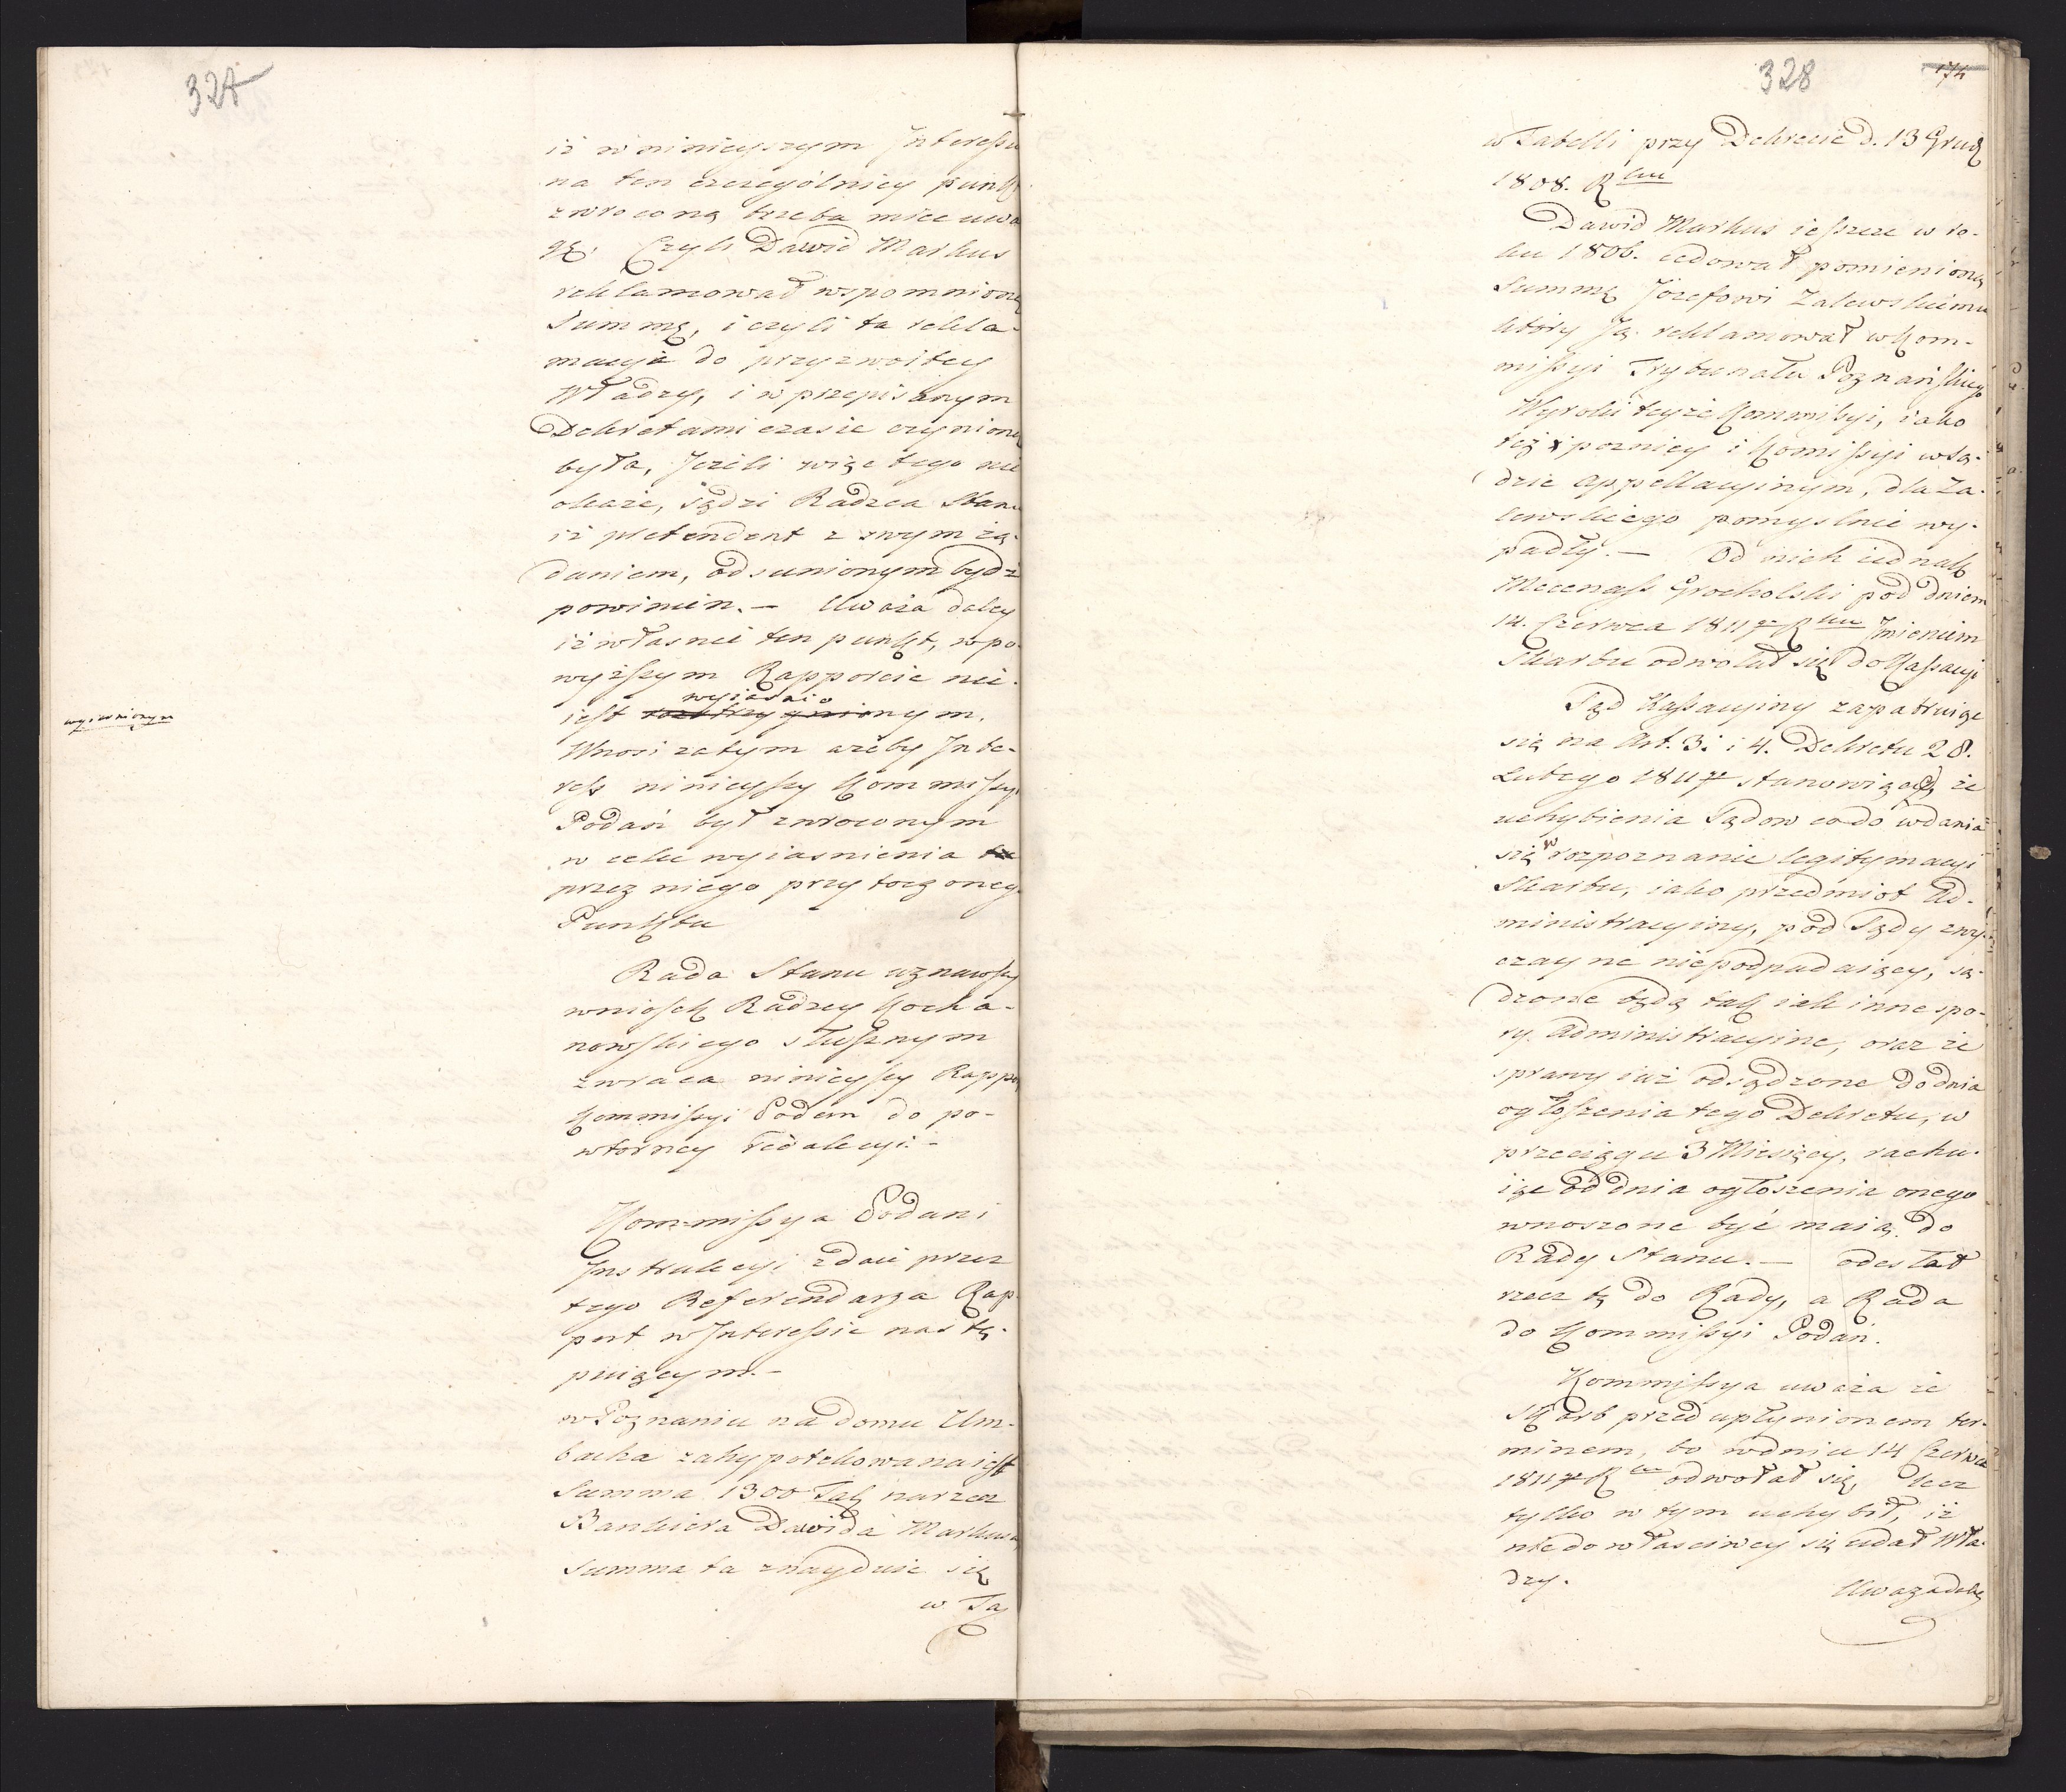 327
iż w ninieyszym Interessie
na ten czczególniey punkt
zwroconą trzeba mieć uwa
gę: Czyli Dawid Markus
reklamował wspomnioną
Summę, i czyli ta rekla-
macya do przyzwoitey
Władzy, i w przepisanym
Dekretami czasie czyniona
była, Jeżeli więc tego nie
okaże, sądzi Radzca Stanu
iż pretendent z swym żą-
daniem, odsunionym bydź
powinien. — Uważa daley
iż własnie ten punkt, w po-
wyższym Rapporcie nie-
wyiasnio
iest rozstrzygnionym.
wyiasnionym
Wnosi zatym ażeby Inte-
ress ninieyszy Kommissyi
Podań był zwroconym
w celu wyiasnienia
przez niego przytoczonego
Punktu
Rada Stanu uznawszy
wniosek Radzcy Kocha-
nowskiego słusznym
zwraca ninieyszy Rapport
Kommissyi Podań do po-
wtorney redakcyi. —
Kommissya Podani
Instrukcyi zdaie przez
tego Referendarza Rap-
port w Interessie nastę-
puiącym. —
w Poznaniu na domu Um-
backa zahypotekowana iest
Summa 1300 Tal. na rzecz
Bankiera Dawida Markusa
Summa ta znayduie się
w Ta
328
174
w Tabelli przy Dekrecie d. 13 Grud
1808. Rku
Dawid Markus ieszcze w ro-
ku 1806. cedował pomienioną
Summę Józefowi Zalewskiemu
który Ją reklamował w Kom-
missyi Trybunału Poznańskiego
Wyroki teyże Kommissyi, iako
też i pozniey i Komissyi w Są-
dzie Appellacyinym, dla Za-
lewskiego pomyslnie wy-
padły. — Od nich iednak
Mecenass Grocholski pod dniem
14. Czerwca 1811go Rku Imieniem
Skarbu odwołał się do Kassacyi
Sąd Kassacyiny zapatruiąc
się na Art. 3. i 4. Dekretu 28.
Lutego 1811go stanowiący że
uchybienia Sądow co do wdania
się w rozpoznanie legitymacyi
Skarbu, iako przedmiot Ad-
ministracyiny, pod Sądy zwy-
czayne niepodpadaiący, są-
dzone będą tak iak inne spo-
ry Administracyine, oraz że
sprawy iuż odsądzone do dnia
ogłoszenia tego Dekretu, w
przeciągu 3 Miesięcy, rachu-
iąc od dnia ogłoszenia onego
wnoszone być maią do
Rady Stanu. — odesłał
rzecz tę do Rady, a Rada
do Kommissyi Podań.
Kommissya uważa że
Skarb przed upłynionem ter-
minem, bo w dniu 14 Czerwca
1811go Rku odwołał się, lecz
tylko w tym uchybił, iż
nie do własciwey się udał Wła-
dzy.
Uważa daley